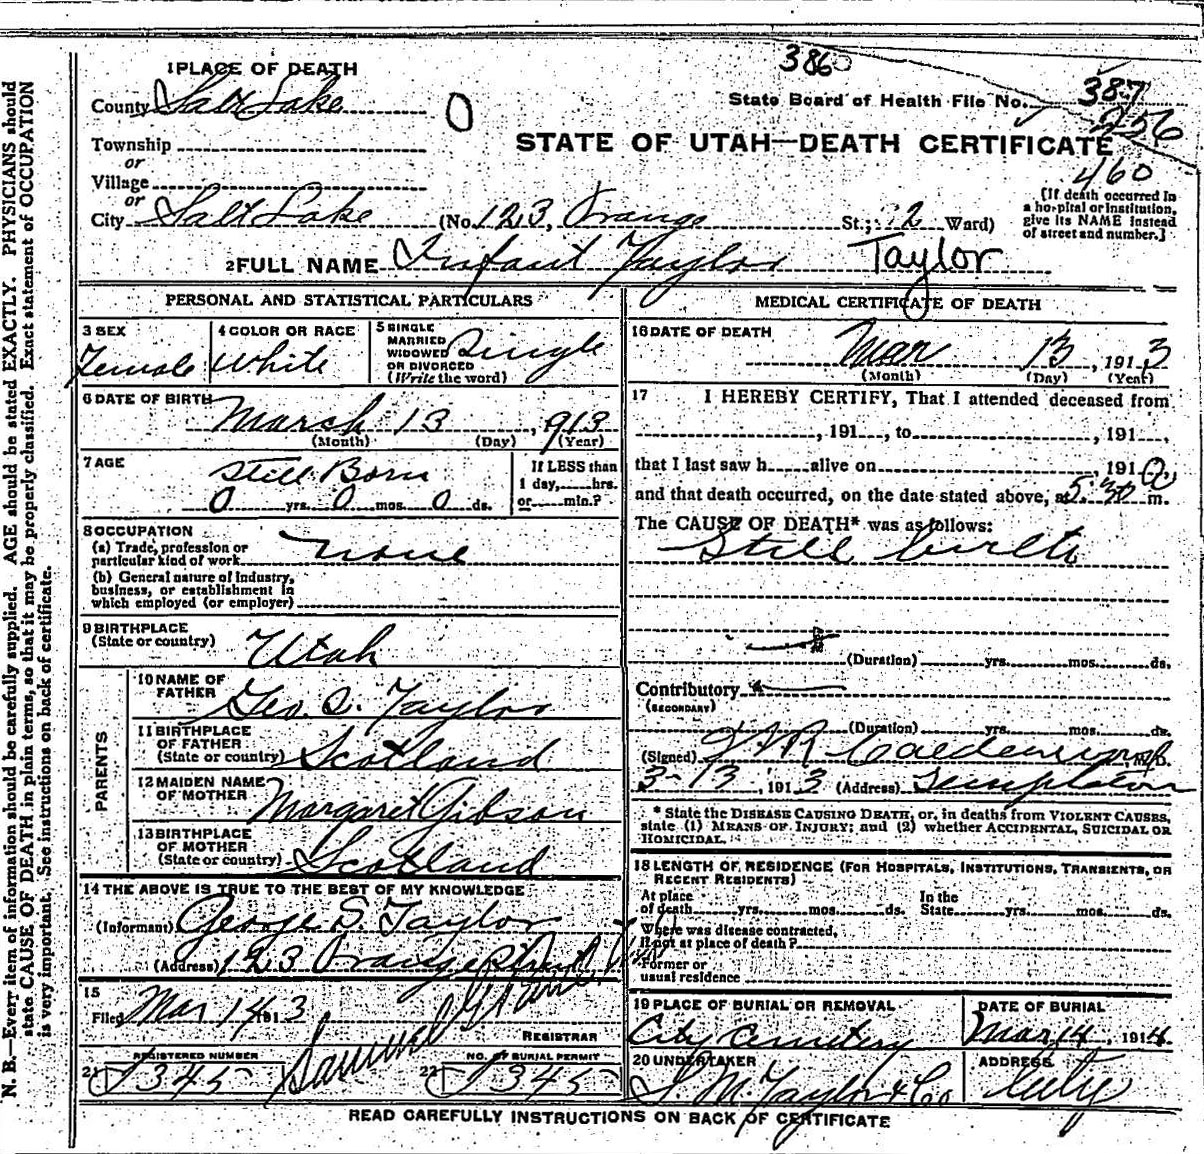 386
1 PLACE OF DEATH
County Salt Lake
O
State Board of Health File No. 387
256
Township
or
STATE OF UTAH—DEATH CERTIFICATE
460
Village
or
City Salt Lake (No. 123, Orange St.; 2 Ward)
[If death occurred in
a hospital or institution,
give its NAME instead
of street and number.]
2 FULL NAME Infant Taylor Taylor
PERSONAL AND STATISTICAL PARTICULARS
3 SEX
Female
4 COLOR OR RACE
White
5 SINGLE
MARRIED
WIDOWED
OR DIVORCED
(Write the word)
Single
6 DATE OF BIRTH
March 13, 913
(Month) (Day) (Year)
7 AGE
Still Born
0 yrs. 0 mos. 0 ds.
If LESS than
1 day, hrs.
or min.?
8 OCCUPATION
(a) Trade, profession or
particular kind of work none
(b) General nature of Industry,
business, or establishment in
which employed (or employer)
9 BIRTHPLACE
(State or country) Utah
PARENTS
10 NAME OF
FATHER Geo. S. Taylor
11 BIRTHPLACE
OF FATHER
(State or country) Scotland
12 MAIDEN NAME
OF MOTHER Margaret Gibson
13 BIRTHPLACE
OF MOTHER
(State or country) Scotland
14 THE ABOVE IS TRUE TO THE BEST OF MY KNOWLEDGE
(Informant) George S. Taylor
(Address) 123 Orange
15
Filed Mar 14 1913
REGISTRAR
REGISTERED NUMBER
21 345
Samuel
NO. OF BURIAL PERMIT
22 345
MEDICAL CERTIFICATE OF DEATH
16 DATE OF DEATH
Mar 13, 1913
(Month) (Day) (Year)
17 I HEREBY CERTIFY, That I attended deceased from
, 191 , to , 191 ,
that I last saw h alive on , 191
and that death occurred, on the date stated above, at 5:30 a m.
The CAUSE OF DEATH* was as follows:
Still birth
(Duration) yrs. mos. ds.
Contributory
(SECONDARY)
(Duration) yrs. mos. ds.
(Signed) M.D.
3-13, 1913 (Address) Templeton
* State the DISEASE CAUSING DEATH, or, in deaths from VIOLENT CAUSES,
state (1) MEANS OF INJURY; and (2) whether ACCIDENTAL, SUICIDAL OR
HOMICIDAL.
18 LENGTH OF RESIDENCE (FOR HOSPITALS, INSTITUTIONS, TRANSIENTS, OR
RECENT RESIDENTS)
At place
of death yrs. mos. ds.
In the
State yrs. mos. ds.
Where was disease contracted,
if not at place of death?
Former or
usual residence
19 PLACE OF BURIAL OR REMOVAL
City Cemetery
DATE OF BURIAL
Mar 14, 1914
20 UNDERTAKER
S. M. Taylor & Co
ADDRESS
City
READ CAREFULLY INSTRUCTIONS ON BACK OF CERTIFICATE
N. B.—Every item of information should be carefully supplied. AGE should be stated EXACTLY. PHYSICIANS should
state CAUSE OF DEATH in plain terms, so that it may be properly classified. Exact statement of OCCUPATION
is very important. See instructions on back of certificate.